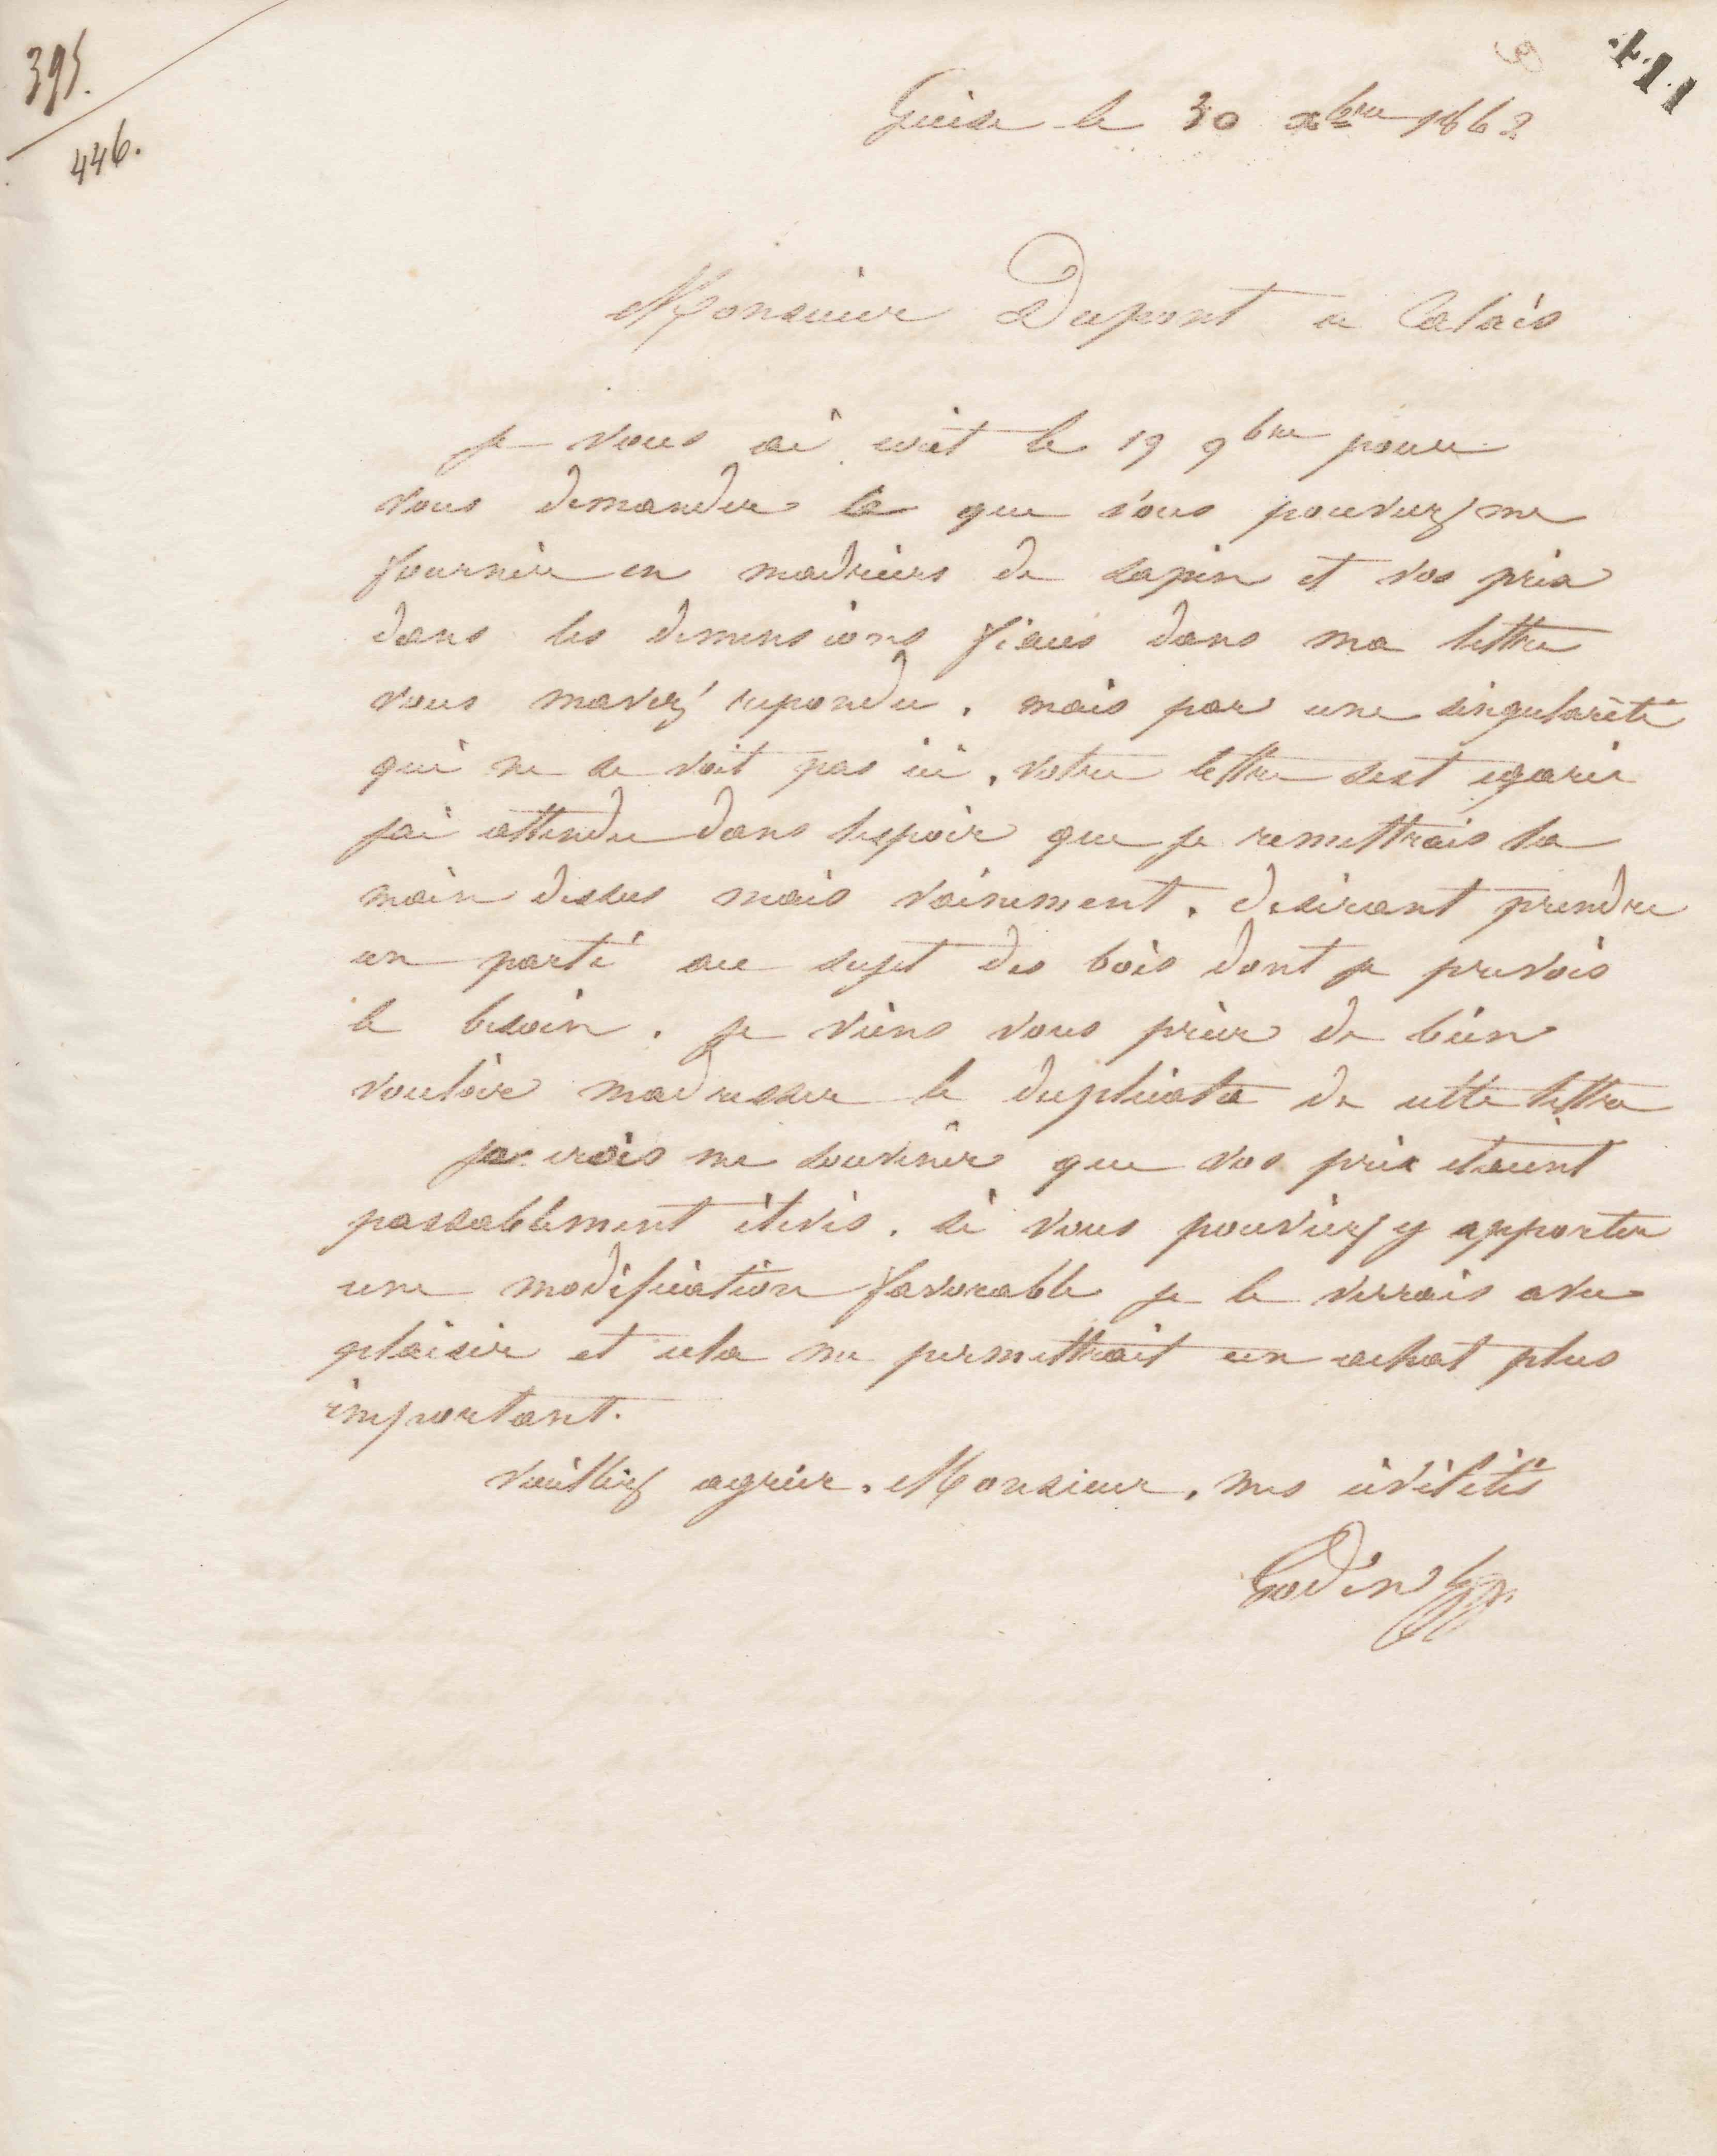 395.
446.
411
9
Guise le 30 xbre 1862
Monsieur Dupont a Calais
je vous ai ecrit le 19 9bre pour
vous demander ce que vous pouvez me
fournir en madriers de sapin et vos prix
dans les dimensions fixees dans ma lettre
vous mavez repondu. mais par une singularité
qui ne se voit pas ici, votre lettre sest egarée
jai attendu dans lespoir que je remettrais la
main dessus mais vainement. desirant prendre
un parti au sujet des bois dont je prevois
le besoin. je viens vous prier de bien
vouloir madresser le duplicata de cette lettre
je crois me souvenir que vos prix etaient
passablement élevés. si vous pouviez y apporter
une modification favorable je le verrais avec
plaisir et cela me permettrait un achat plus
important.
veuillez agréer, Monsieur, mes civilités
Godin